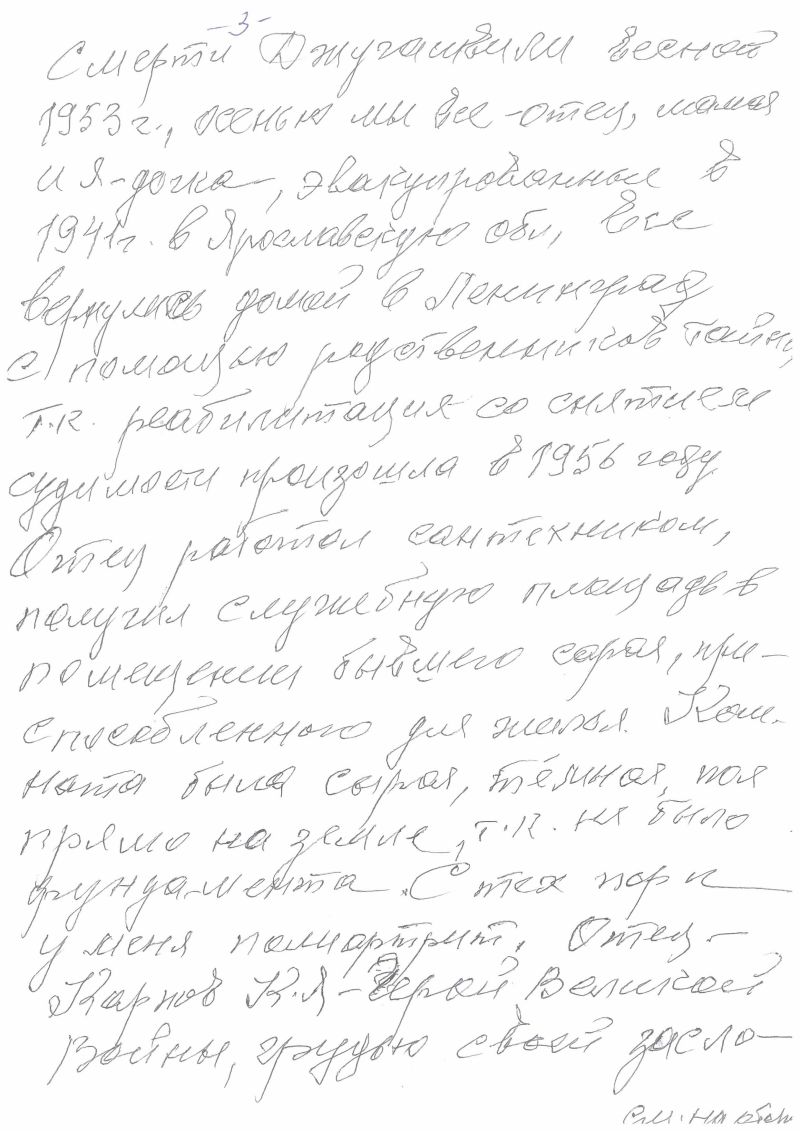 -3-
Смерти Джугашвили весной
1953г., осенью мы все - отец, мама
и я - дочка -, эвакуированные в
1941г. в Ярославскую обл, все
вернулись домой в Ленинград
с помощью родственников тайно,
т.к. реабилитация со снятием
судимости произошла в 1956 году
Отец работал сантехником,
получил служебную площадь в
помещении бывшего сарая, при-
способленного для жилья. Ком-
ната была сырая, тёмная, пол
прямо на земле, т.к. не было
фундамента. С тех пор и
у меня полиартрит. Отец -
Карпов К.Я - Герой Великой
Войны, грудью своей засло-
см. на обор